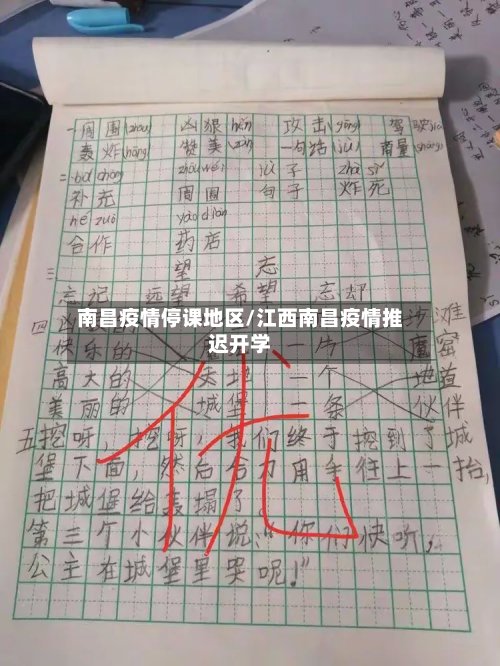 一周围(zhōu) 凶狠(hěn) 攻击(gōng) 驾驶
轰炸(hōng) 赞美(zàn) 一句话(jù) 商量(shāng)
二bǔ chōng zhōu wéi jù zi zhà sǐ
补充 周围 句子 炸死
hé zuò yào diàn
合作 药店
三 望 忘
忘记 远望 希望 忘却
南昌疫情停课地区/江西南昌疫情推
迟开学
四
快乐的 一片
高大的 一个 地道
美丽的 城堡 一条 伙伴
优
五挖呀,挖呀,我们终于挖到了城
堡下面,然后合力用手往上一抬,
把城堡给轰塌了。
第三个小伙伴说:“你们快听,
公主在城堡里哭呢!”